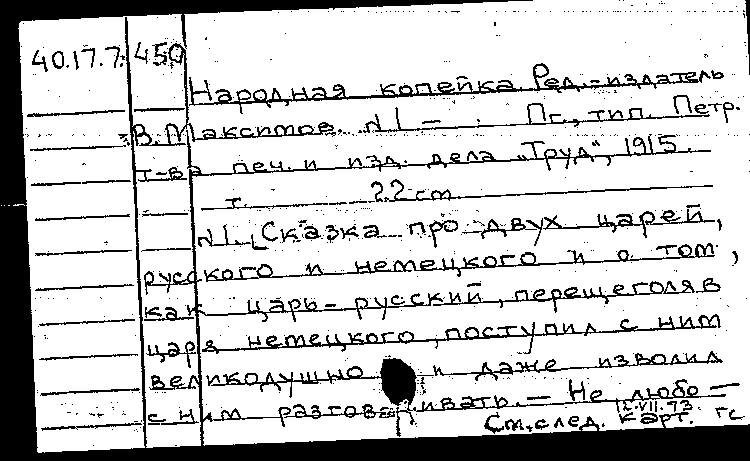 40.17.7. 450
Народная копейка. Ред.-издатель
В. Максимов. №1 – . Пг., тип. Петр.
т-ва печ. и изд. дела „Труд“, 1915.
т. 22 cm
№1. Сказка про двух царей,
русского и немецкого и о том,
как царь-русский, перещеголяв
царя немецкого, поступил с ним
великодушно и даже изволил
с ним разговаривать. – Не любо –
12.VII.73.
См. след. карт. гс